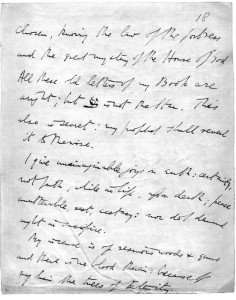 18
chosen, knowing the law of the fortress
and the great mystery of the House of God
All these old letters of my Book are
aright; but צ is not the Star. This
also is secret: my prophet shall reveal
it to the wise.
I give unimaginable joys on earth: certainty,
not faith, while in life, upon death; peace
unutterable, rest, ecstasy; nor do I demand
aught in sacrifice.
My incense is of resinous woods & gums
and there is no blood therein: because of
my hair the trees of Eternity.